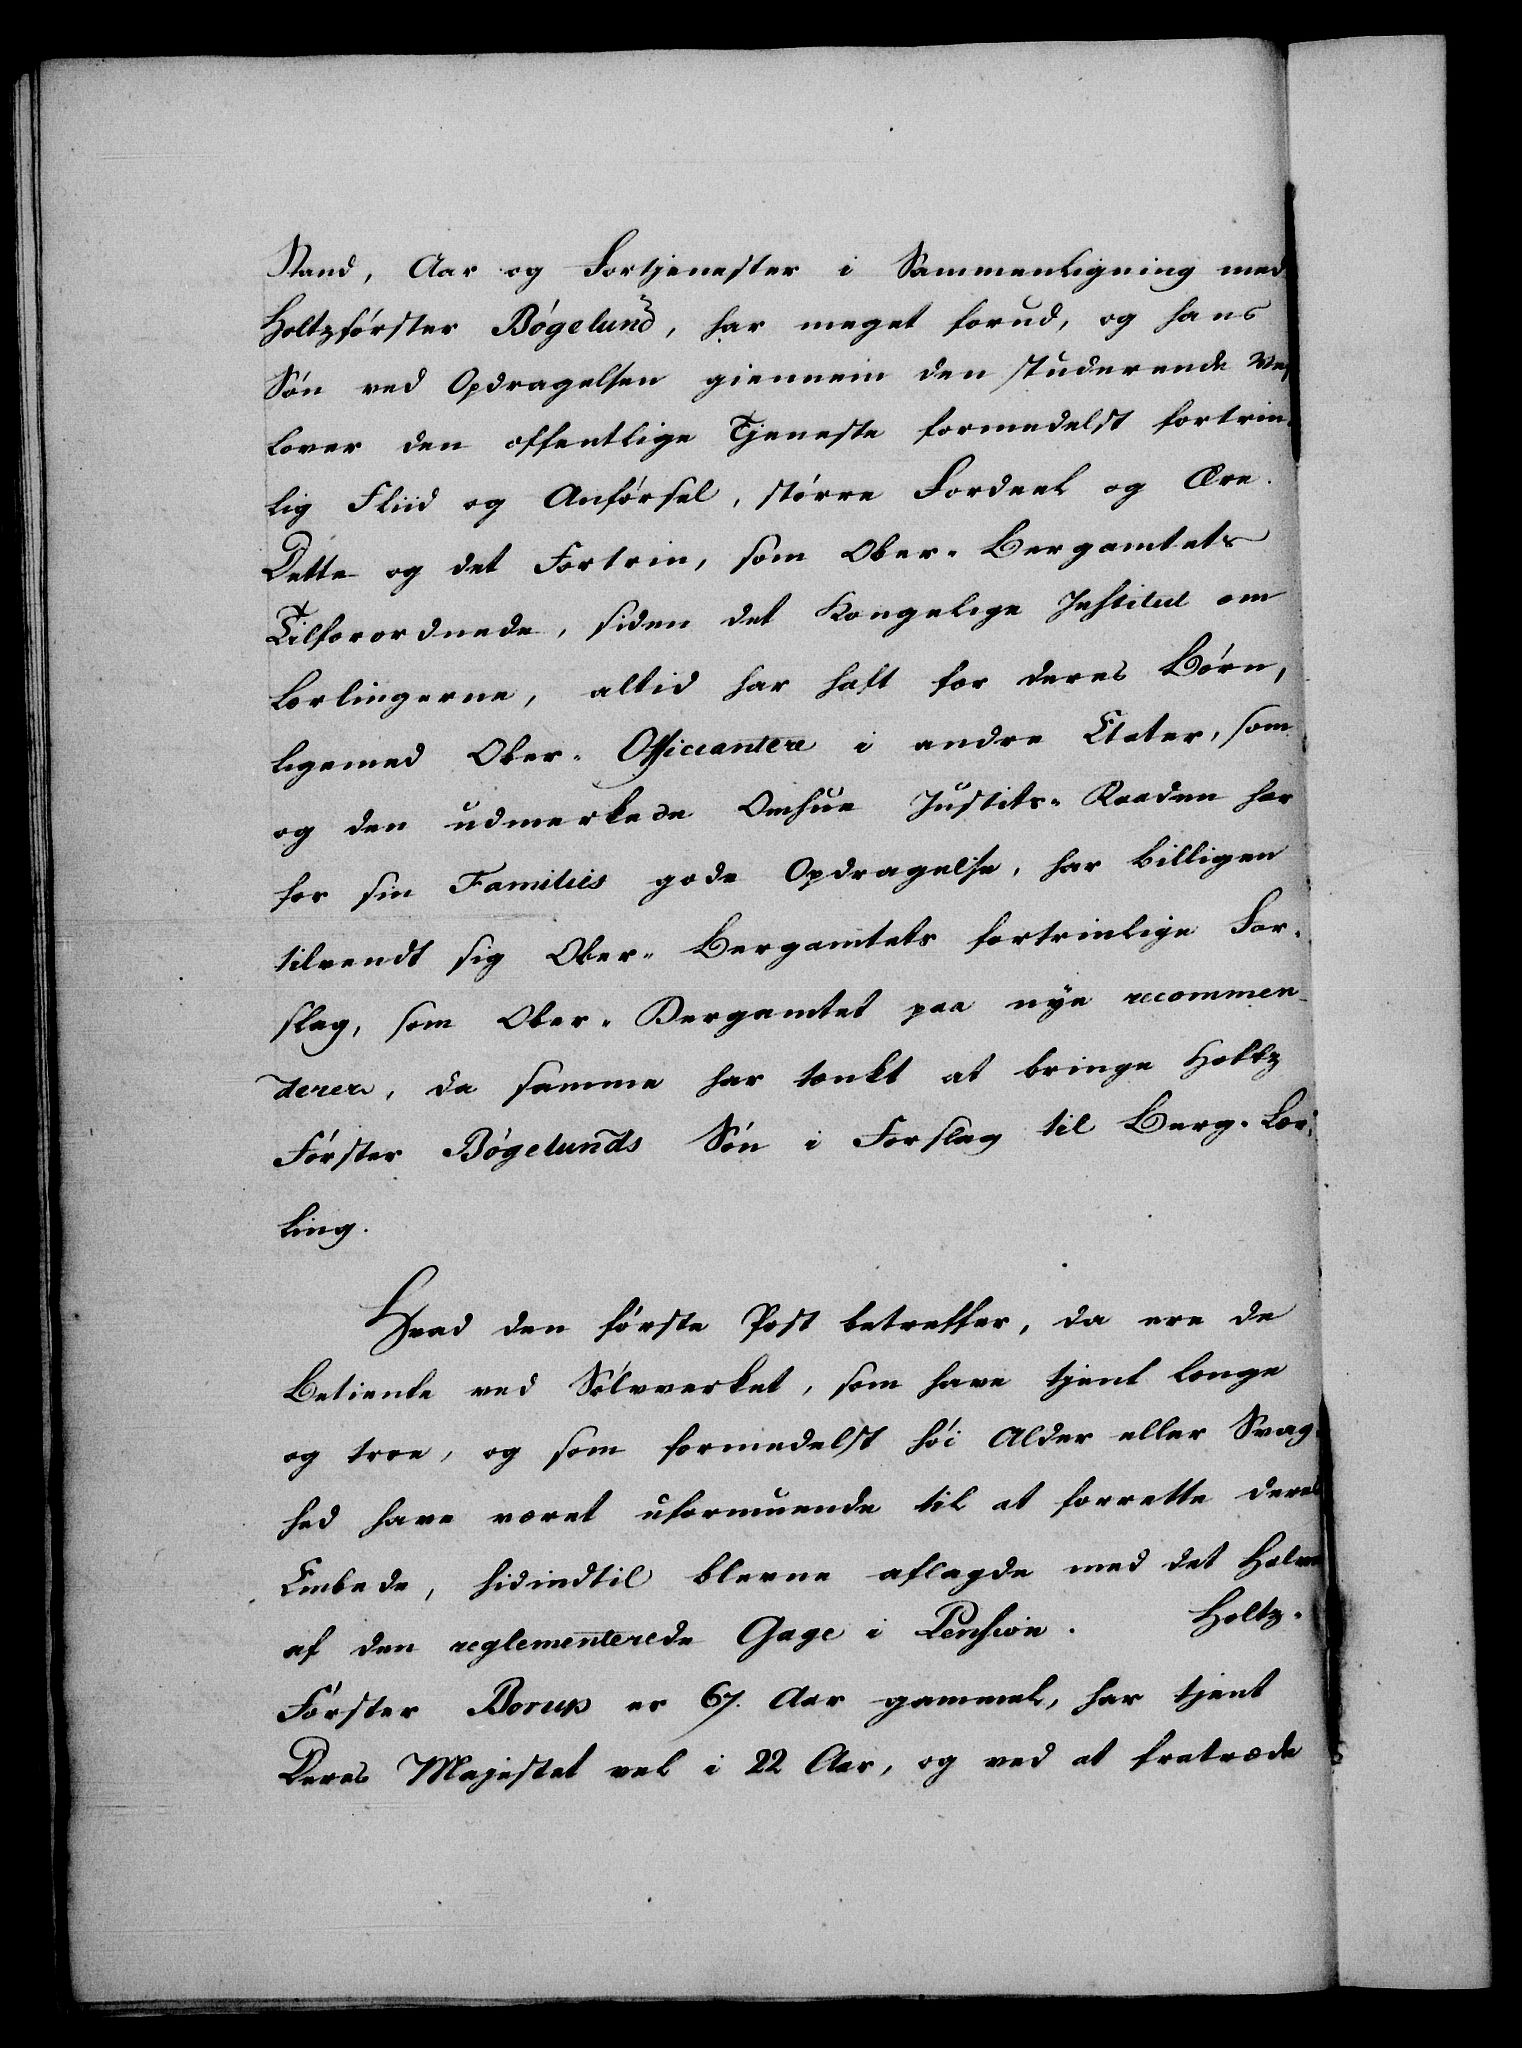 Stand, Aar og Fortjenester i Sammenligning med
Holtzförster Bögelund, har meget forud, og hans
Sön ved Opdragelsen giennem den studerende Vei
lover den offentlige Tjeneste formedelst fortrin-
lig Fliid og Anförsel, större Fordeel og Ære.
Dette og det Fortrin, som Ober-Bergamtets
Tilforordnede, siden det Kongelige Institut om
Lærlingerne, altid har haft for deres Börn,
ligemed Ober-Officiantere i andre Etater, som
og den udmerkede Omhue Justits-Raaden har
for sin Familiis gode Opdragelse, har billigen
tilvendt sig Ober-Bergamtets fortrinlige For-
slag, som Ober-Bergamtet paa nye recommen-
derer, da samme har tænkt at bringe Holtz
Förster Bögelunds Sön i Forslag til Berg-Lær-
ling.
Hvad den förste Post betreffer, da ere de
Betiente ved Sölvverket, som have tjent længe
og troe, og som formedelst höi Alder eller Svag-
hed have været uformuende til at forrette deres
Embede, hidindtil blevne aflagde med det Halve
af den reglementerede Gage i Pension. Holtz-
Förster Borup er 67. Aar gammel, har tjent
Deres Majestet vel i 22 Aar, og ved at fratræde